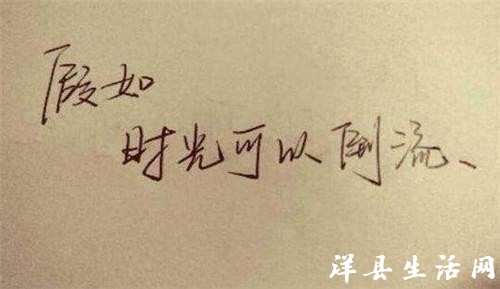 假如
时光可以倒流、
洋县生活网